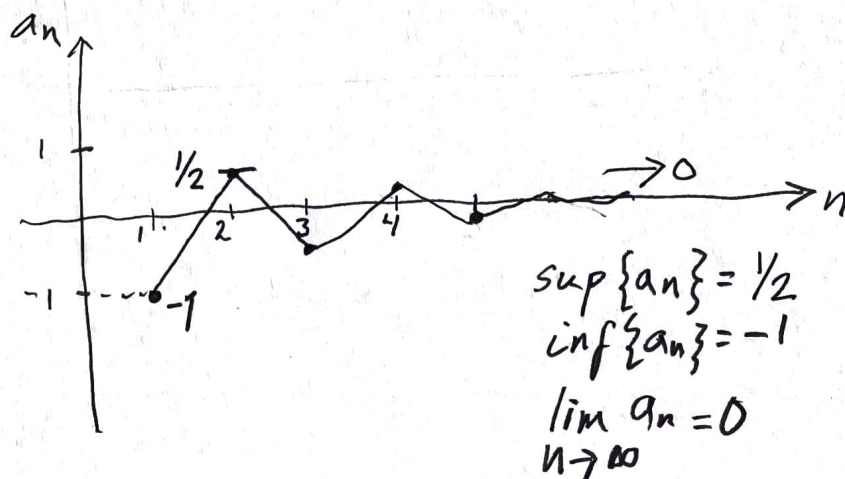 aₙ
1
1/2
→ 0
n
1
2
3
4
-1
-1
sup{aₙ} = 1/2
inf{aₙ} = -1
lim aₙ = 0
n→∞